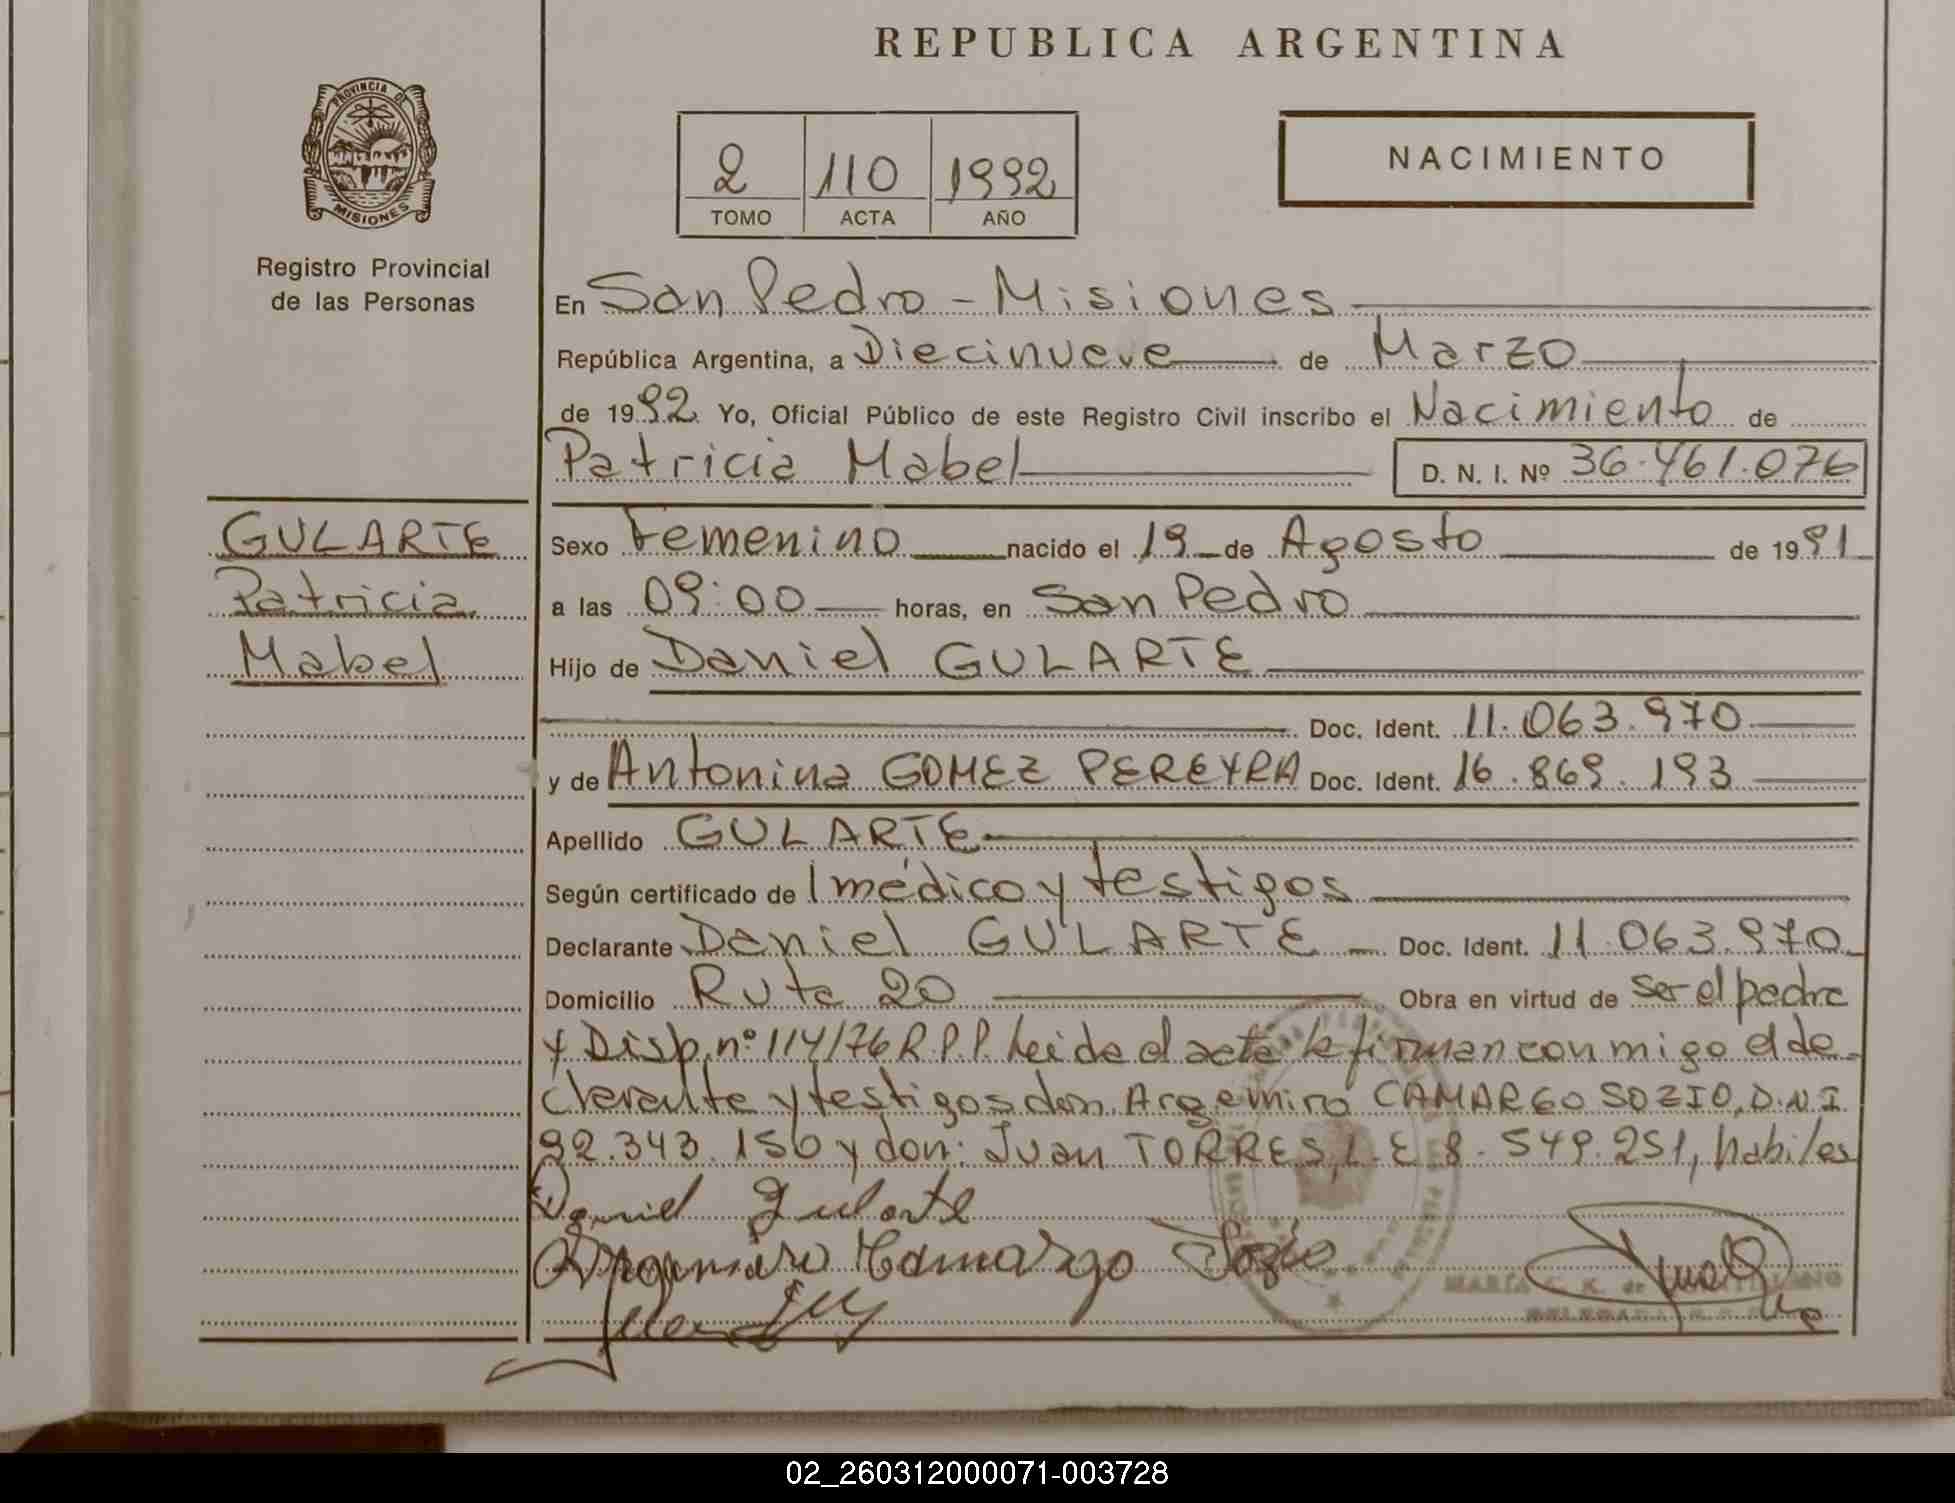 REPUBLICA ARGENTINA
PROVINCIA DE
MISIONES
Registro Provincial
de las Personas
2 110 1992
TOMO ACTA AÑO
NACIMIENTO
En San Pedro - Misiones
República Argentina, a Diecinueve de Marzo
de 1992 Yo, Oficial Público de este Registro Civil inscribo el Nacimiento de
Patricia Mabel D. N. I. Nº 36.461.076
GULARTE
Patricia
Mabel
Sexo Femenino nacido el 19 de Agosto de 1991
a las 09:00 horas, en San Pedro
Hijo de Daniel GULARTE
Doc. Ident. 11.063.970
y de Antonina GOMEZ PEREYRA Doc. Ident. 16.869.193
Apellido GULARTE
Según certificado de 1 médico y testigos
Declarante Daniel GULARTE Doc. Ident. 11.063.970
Domicilio Ruta 20 Obra en virtud de ser el padre
y Disp. nº 114/76 R.P.P. Leida el acta la firman conmigo el de-
clarante y testigos don Argemiro CAMARGO SOZIO, D.N.I.
92.343.150 y don: Juan TORRES, L.E 8.549.251, habiles
Daniel Gularte
Argemiro Camargo Sozio
MARÍA
02_260312000071-003728